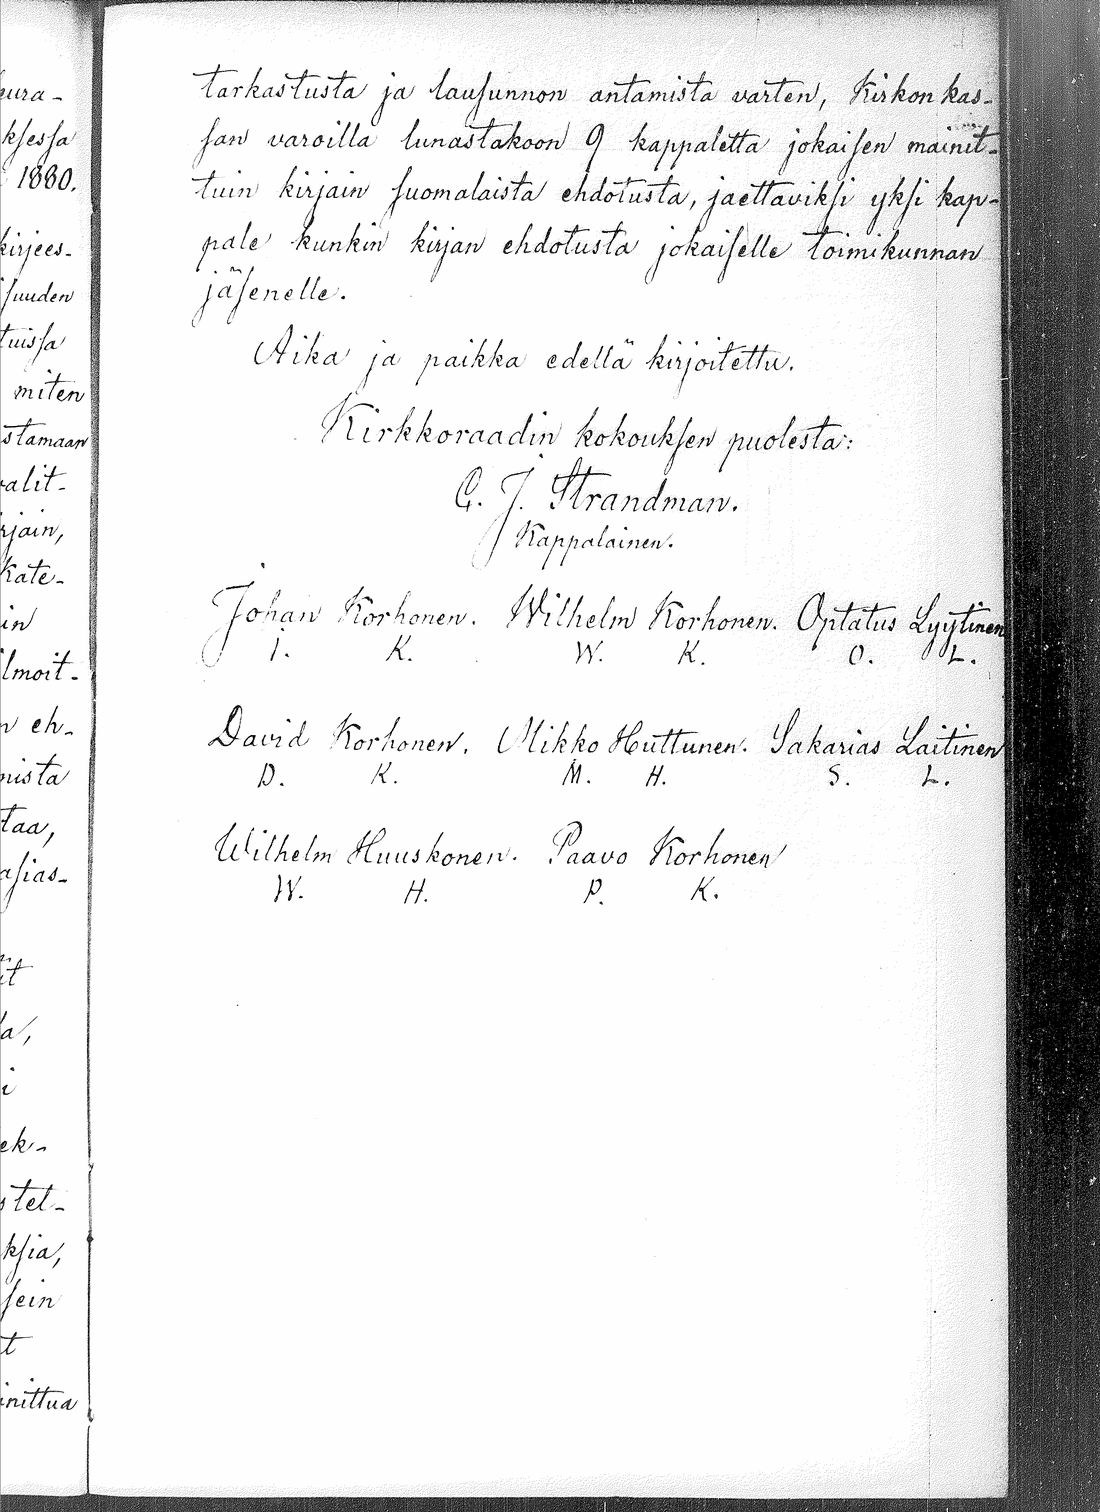 eura-
ksessa
1880.
kirjees-
suuden
tuissa
miten
stamaan
valit-
rjain,
Kate-
in
lmoit-
n eh-
mista
taa,
asias-
it
a,
i
ek-
stel-
ksia,
sein
t
inittua
tarkastusta ja lausunnon antamista varten, Kirkon kas-
san varoilla lunastakoon 9 kappaletta jokaisen mainit-
tuin kirjain suomalaista ehdotusta, jaettaviksi yksi kap-
pale kunkin kirjan ehdotusta jokaiselle toimikunnan
jäsenelle.
Aika ja paikka edellä kirjoitettu.
Kirkkoraadin kokouksen puolesta:
C. J. Strandman.
Kappalainen.
Johan Korhonen. Wilhelm Korhonen. Optatus Lyytinen
J. K. W. K. O. L.
David Korhonen. Mikko Huttunen. Sakarias Laitinen
D. K. M. H. S. L.
Wilhelm Huuskonen. Paavo Korhonen
W. H. P. K.